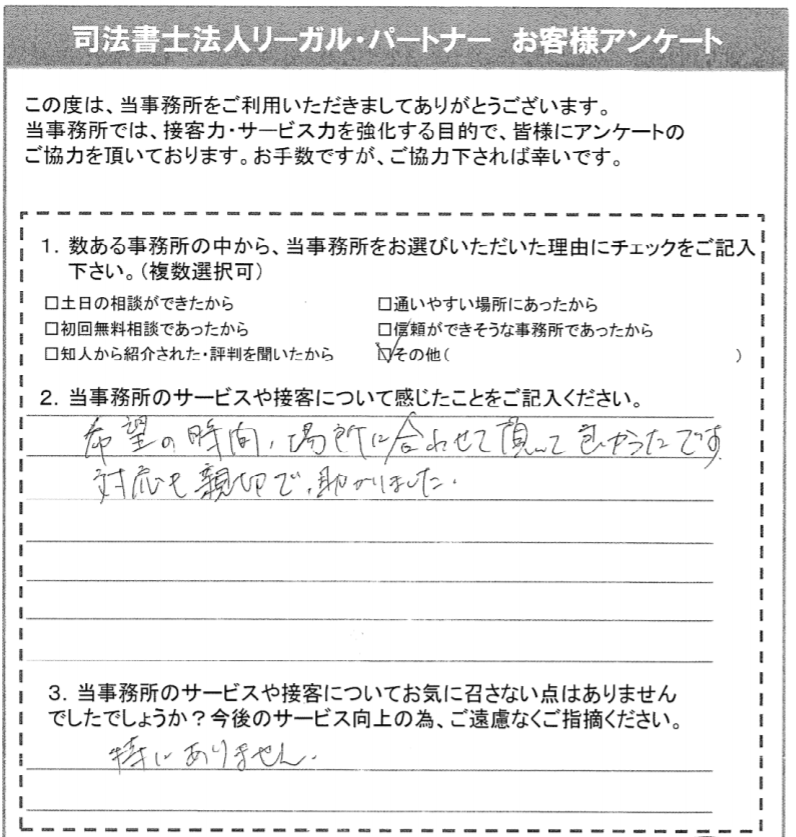 司法書士法人リーガル・パートナー お客様アンケート
この度は、当事務所をご利用いただきましてありがとうございます。
当事務所では、接客力・サービス力を強化する目的で、皆様にアンケートの
ご協力を頂いております。お手数ですが、ご協力下されば幸いです。
1. 数ある事務所の中から、当事務所をお選びいただいた理由にチェックをご記入
下さい。(複数選択可)
□土日の相談ができたから □通いやすい場所にあったから
□初回無料相談であったから □信頼ができそうな事務所であったから
□知人から紹介された・評判を聞いたから ☑その他( )
2. 当事務所のサービスや接客について感じたことをご記入ください。
希望の時間、場所に合わせて頂いて良かったです
対応も親切で、助かりました。
3. 当事務所のサービスや接客についてお気に召さない点はありません
でしたでしょうか?今後のサービス向上の為、ご遠慮なくご指摘ください。
特にありません。